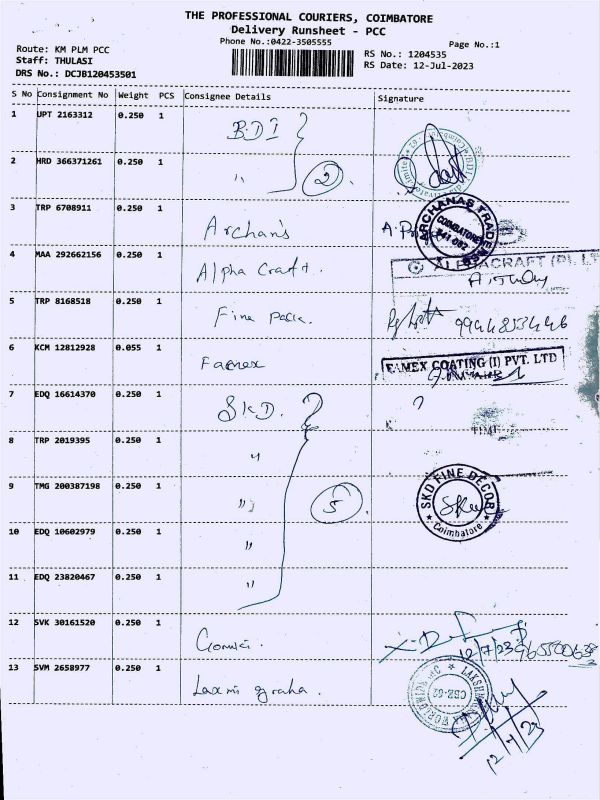 THE PROFESSIONAL COURIERS, COIMBATORE
Delivery Runsheet - PCC
Phone No.:0422-3505555
Page No.:1
Route: KM PLM PCC
Staff: THULASI
DRS No.: DCJB120453501
RS No.: 1204535
RS Date: 12-Jul-2023
S No Consignment No Weight PCS Consignee Details Signature
1 UPT 2163312 0.250 1 BDI
2 HRD 366371261 0.250 1 " 2
3 TRP 6708911 0.250 1 Archan's
ARCHANAS TRADE
COIMBATORE
641 082
4 MAA 292662156 0.250 1 Alpha Craft.
ALPHACRAFT (P) LT
5 TRP 8168518 0.250 1 Fine pack.
6 KCM 12812928 0.055 1 Famex
FAMEX COATING (I) PVT. LTD
7 EDQ 16614370 0.250 1 SKD. ?
TIME
8 TRP 2019395 0.250 1 "
9 TMG 200387198 0.250 1 " 5
SKD FINE DECOR
Coimbatore
10 EDQ 10602979 0.250 1 "
11 EDQ 23820467 0.250 1 "
12 SVK 30161520 0.250 1
12/7/23
13 SVM 2658977 0.250 1 Laxmi graha.
CBE-62
12/7/23